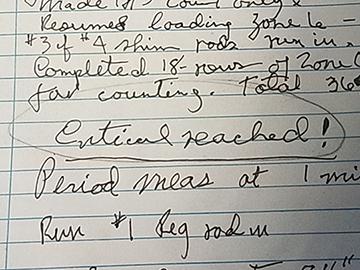 Made 18- count only &
Resumed loading Zone 6 –
#3 & #4 shim rods run in.
Completed 18- rows of Zone 6
for counting. Total 36
Critical reached!
Period meas at 1 mi
Run #1 Reg rod in